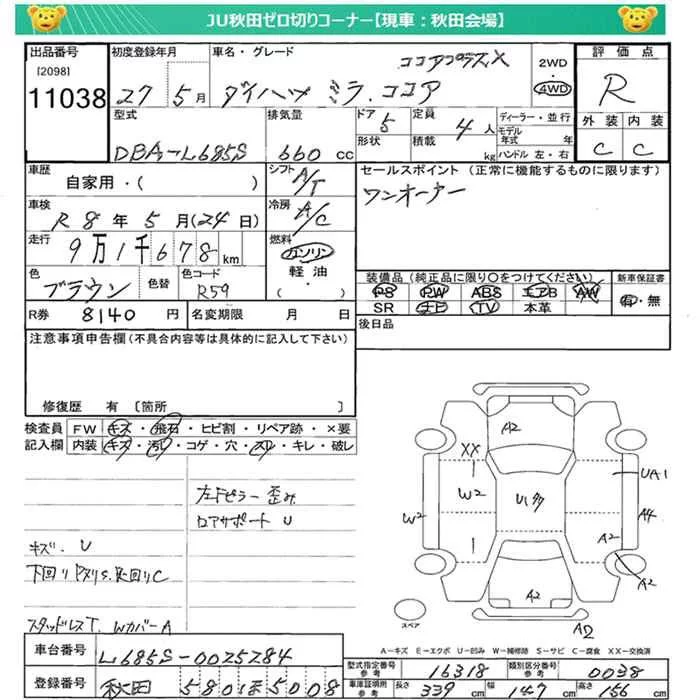 JU秋田ゼロ切りコーナー【現車：秋田会場】
出品番号 初度登録年月 車名・グレード ココアプラスX 2WD 評価点
[2098] 4WD
11038 27 5月 ダイハツ ミラ・ココア R
型式 排気量 ドア 定員 ディーラー・並行 外装 内装
DBA-L685S 660 CC 5 4人 モデル年式 年 C C
形状 積載 kg ハンドル 左・右
車歴 シフト A/T セールスポイント（正常に機能するものに限ります）
自家用・( ) ワンオーナー
車検 冷房 A/C
R8年5月(24日)
走行 燃料
9万1千678km ガソリン
色 色替 色コード 軽油 装備品（純正品に限り○をつけてください） 新車保証書
ブラウン R59 ( ) PS PW ABS エアB AW 有・無
SR ナビ TV 本革
R券 8140円 名変期限 月 日 後日品
注意事項申告欄（不具合内容等は具体的に記入して下さい）
修復歴 有 〔箇所 〕
検査員 FW キズ・飛石・ヒビ割・リペア跡・×要
記入欄 内装 キズ・汚レ・コゲ・穴・スレ・キレ・破レ
左Fピラー歪み
ロアサポートU
キズ.U
スタッドレスT. WカバーA
A2
XX
W2
U1多
UA1
W2
A4
A2
A2
A2
A2
スペア
A-キズ E-エクボ U-凹み W-補修跡 S-サビ C-腐食 XX-交換済
車台番号 L685S-0025284 型式指定番号 参考 16318 類別区分番号 参考 0038
登録番号 秋田 580 ほ 5008 車庫証明用 参考 長さ 339cm 幅 147cm 高さ cm